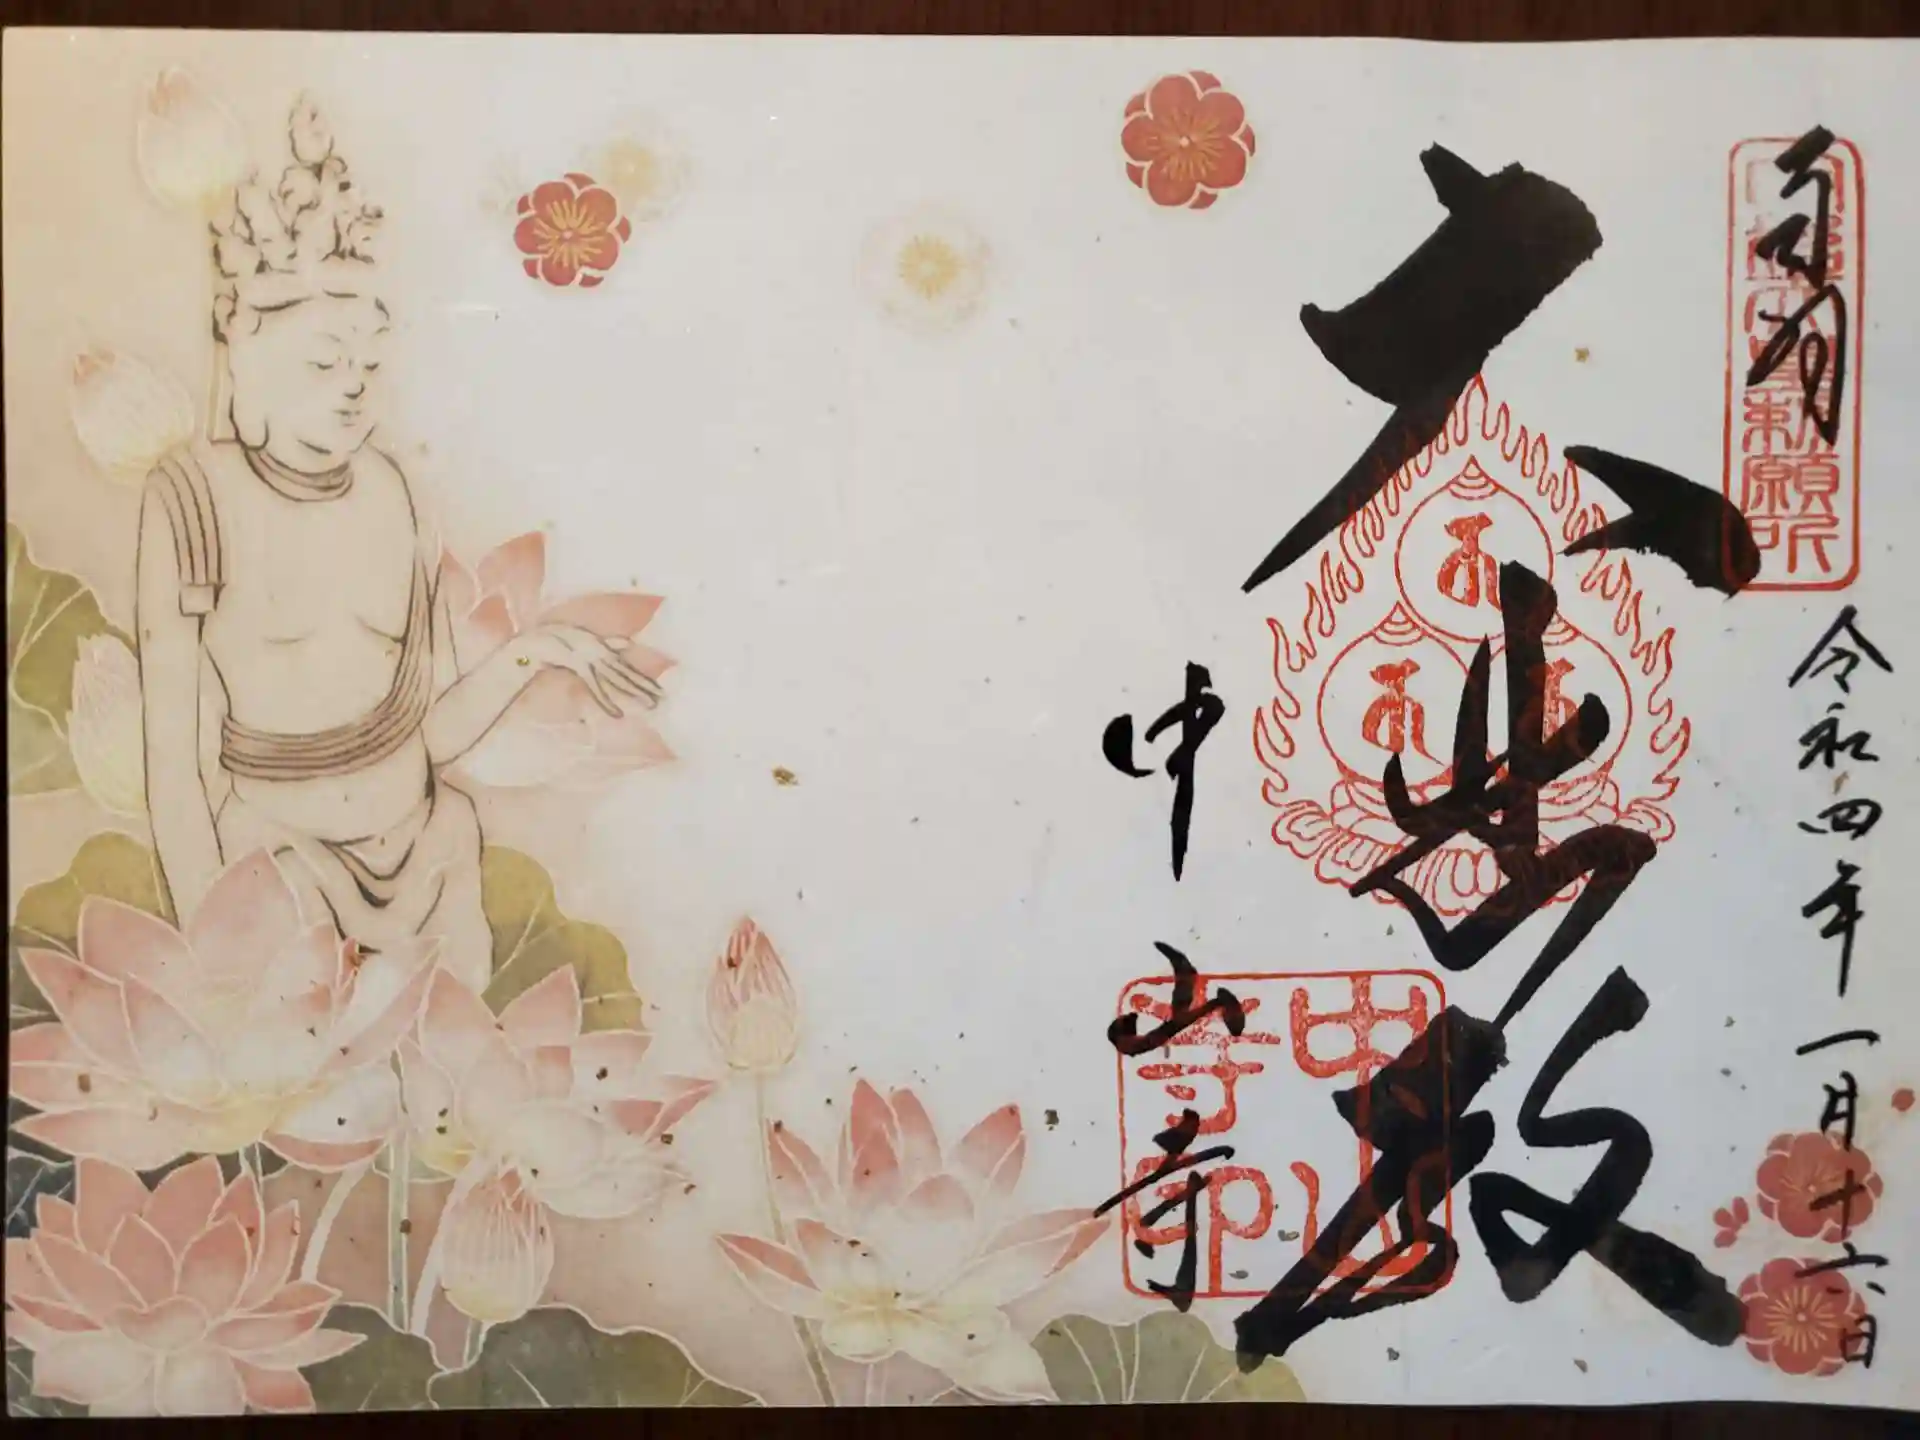 奉拝
皇勅願所
令和四年一月十六日
大悲殿
中山寺
中山寺印